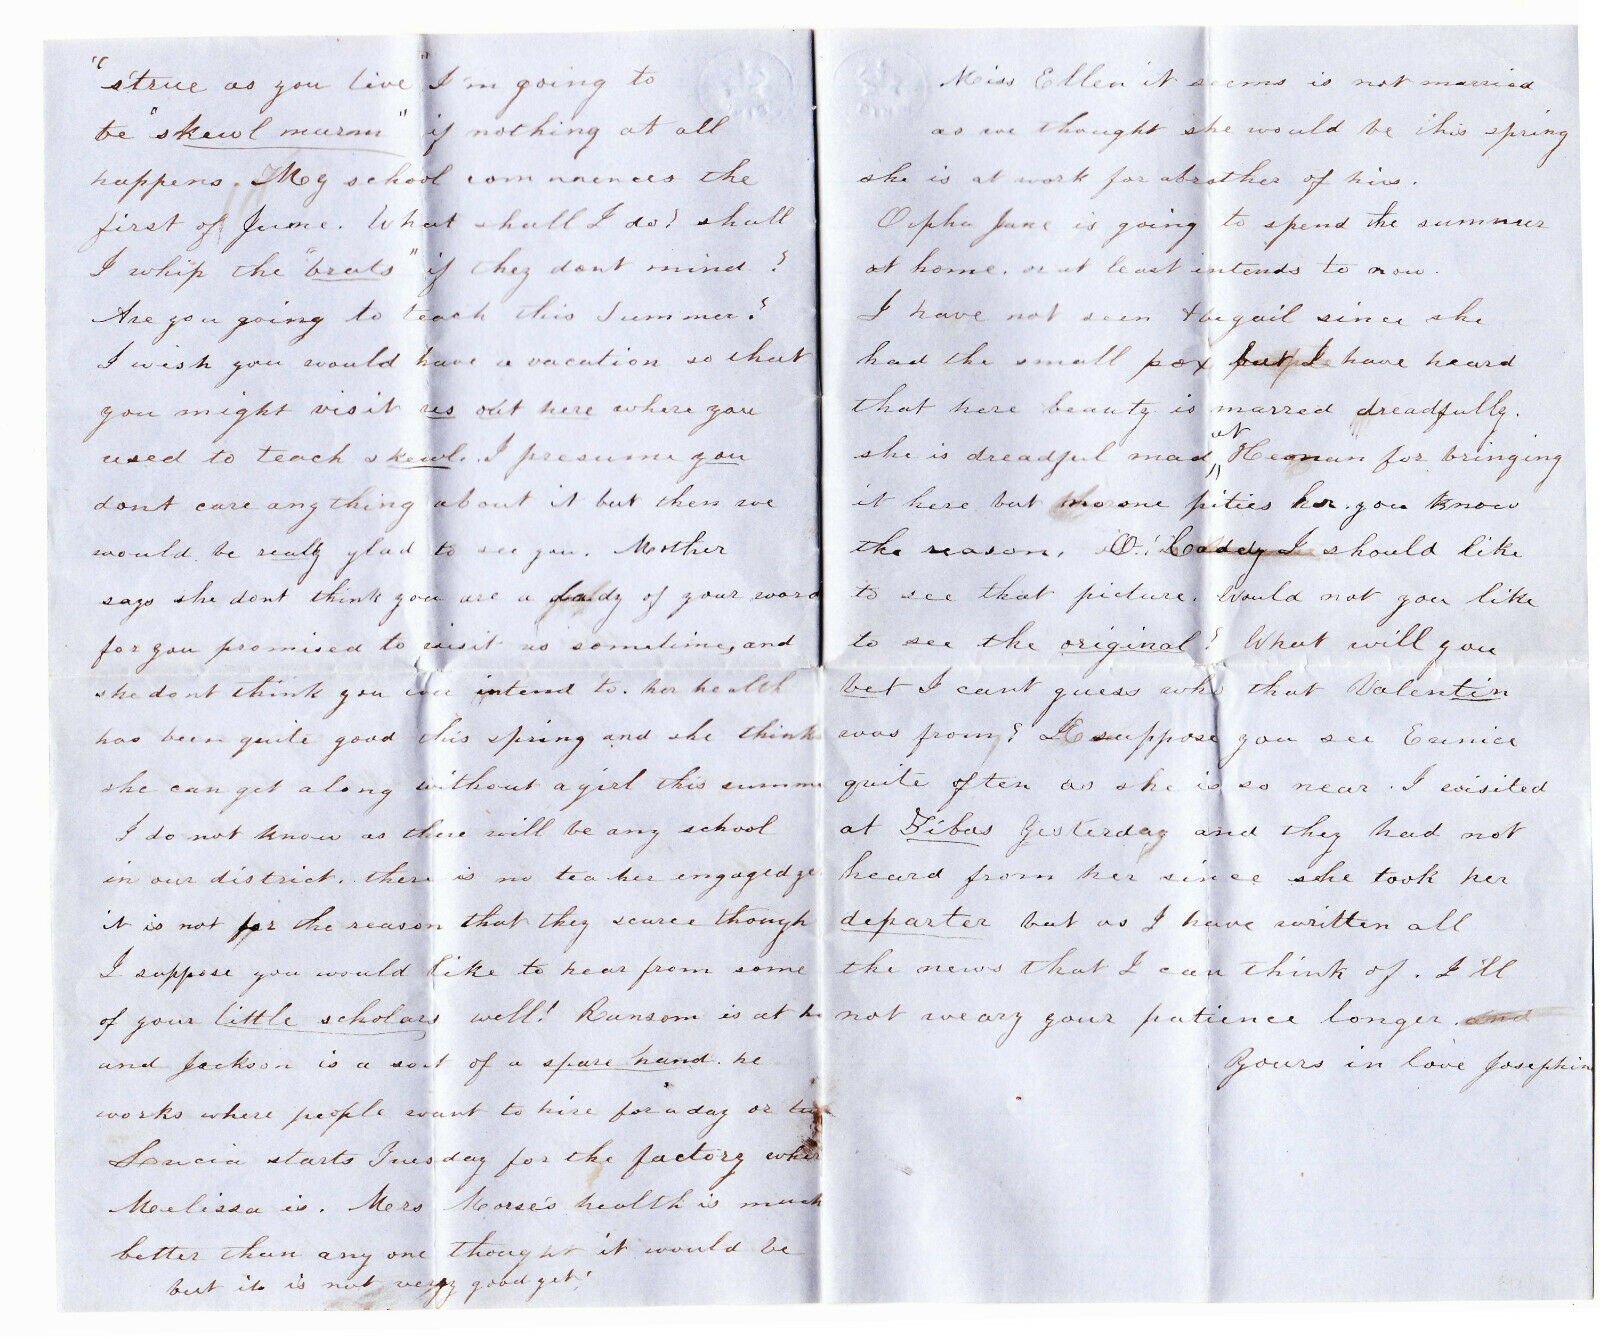 "strue as you live" I'm going to
be "skewl marm" if nothing at all
happens. My school commences the
first of June. What shall I do? shall
I whip the "brats" if they dont mind?
Are you going to teach this Summer?
I wish you would have a vacation so that
you might visit us out here where you
used to teach skewl. I presume you
dont care any thing about it but then we
would be really glad to see you. Mother
says she dont think you are a lady of your word
for you promised to visit us sometime, and
she dont think you intend to. her health
has been quite good this spring and she thinks
she can get along without a girl this summe
I do not know as there will be any school
in our district. there is no teacher engaged ye
it is not for the reason that they scarce though
I suppose you would like to hear from some
of your little scholars well! Ransom is at h
and Jackson is a sort of a spare hand. he
works where people want to hire for a day or tw
Lucia starts Tuesday for the factory wher
Melissa is. Mrs Morse's health is much
better than any one thought it would be
but it is not very good yet!
Miss Ellen it seems is not married
as we thought she would be this spring
she is at work for a brother of hers.
Orpha Jane is going to spend the summer
at home. or at least intends to now.
I have not seen Abegail since she
had the small pox but I have heard
that here beauty is marred dreadfully.
she is dreadful mad at Heman for bringing
it here but no one pities her. you know
the reason. O! Caddy I should like
to see that picture. Would not you like
to see the original? What will you
bet I cant guess who that Valentin
was from? I suppose you see Eunice
quite often as she is so near. I visited
at Tibas yesterday and they had not
heard from her since she took her
departer but as I have written all
the news that I can think of. I'll
not weary your patience longer. and
Yours in love Josephin